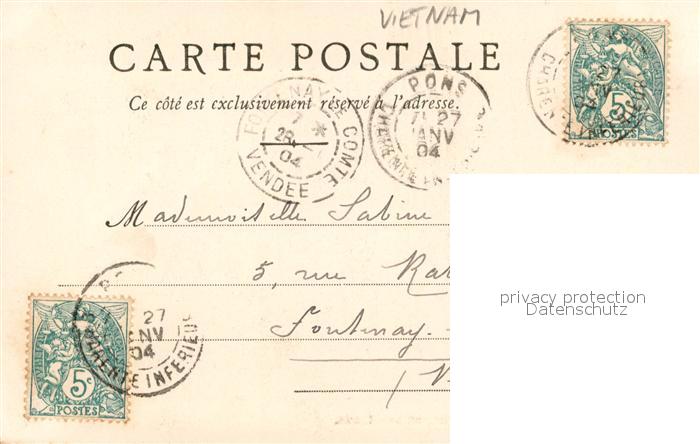 VIETNAM
CARTE POSTALE
Ce côté est exclusivement réservé à l'adresse.
PONS
27
JANV
04
CHARENTE INF
5c
POSTES
FONTENAY LE COMTE
7 *
28
04
VENDEE
Mademoiselle Sabine
5, rue Ra
Fontenay-
(V
privacy protection
Datenschutz
27
JANV
04
CHARENTE INFERIEURE
5c
POSTES